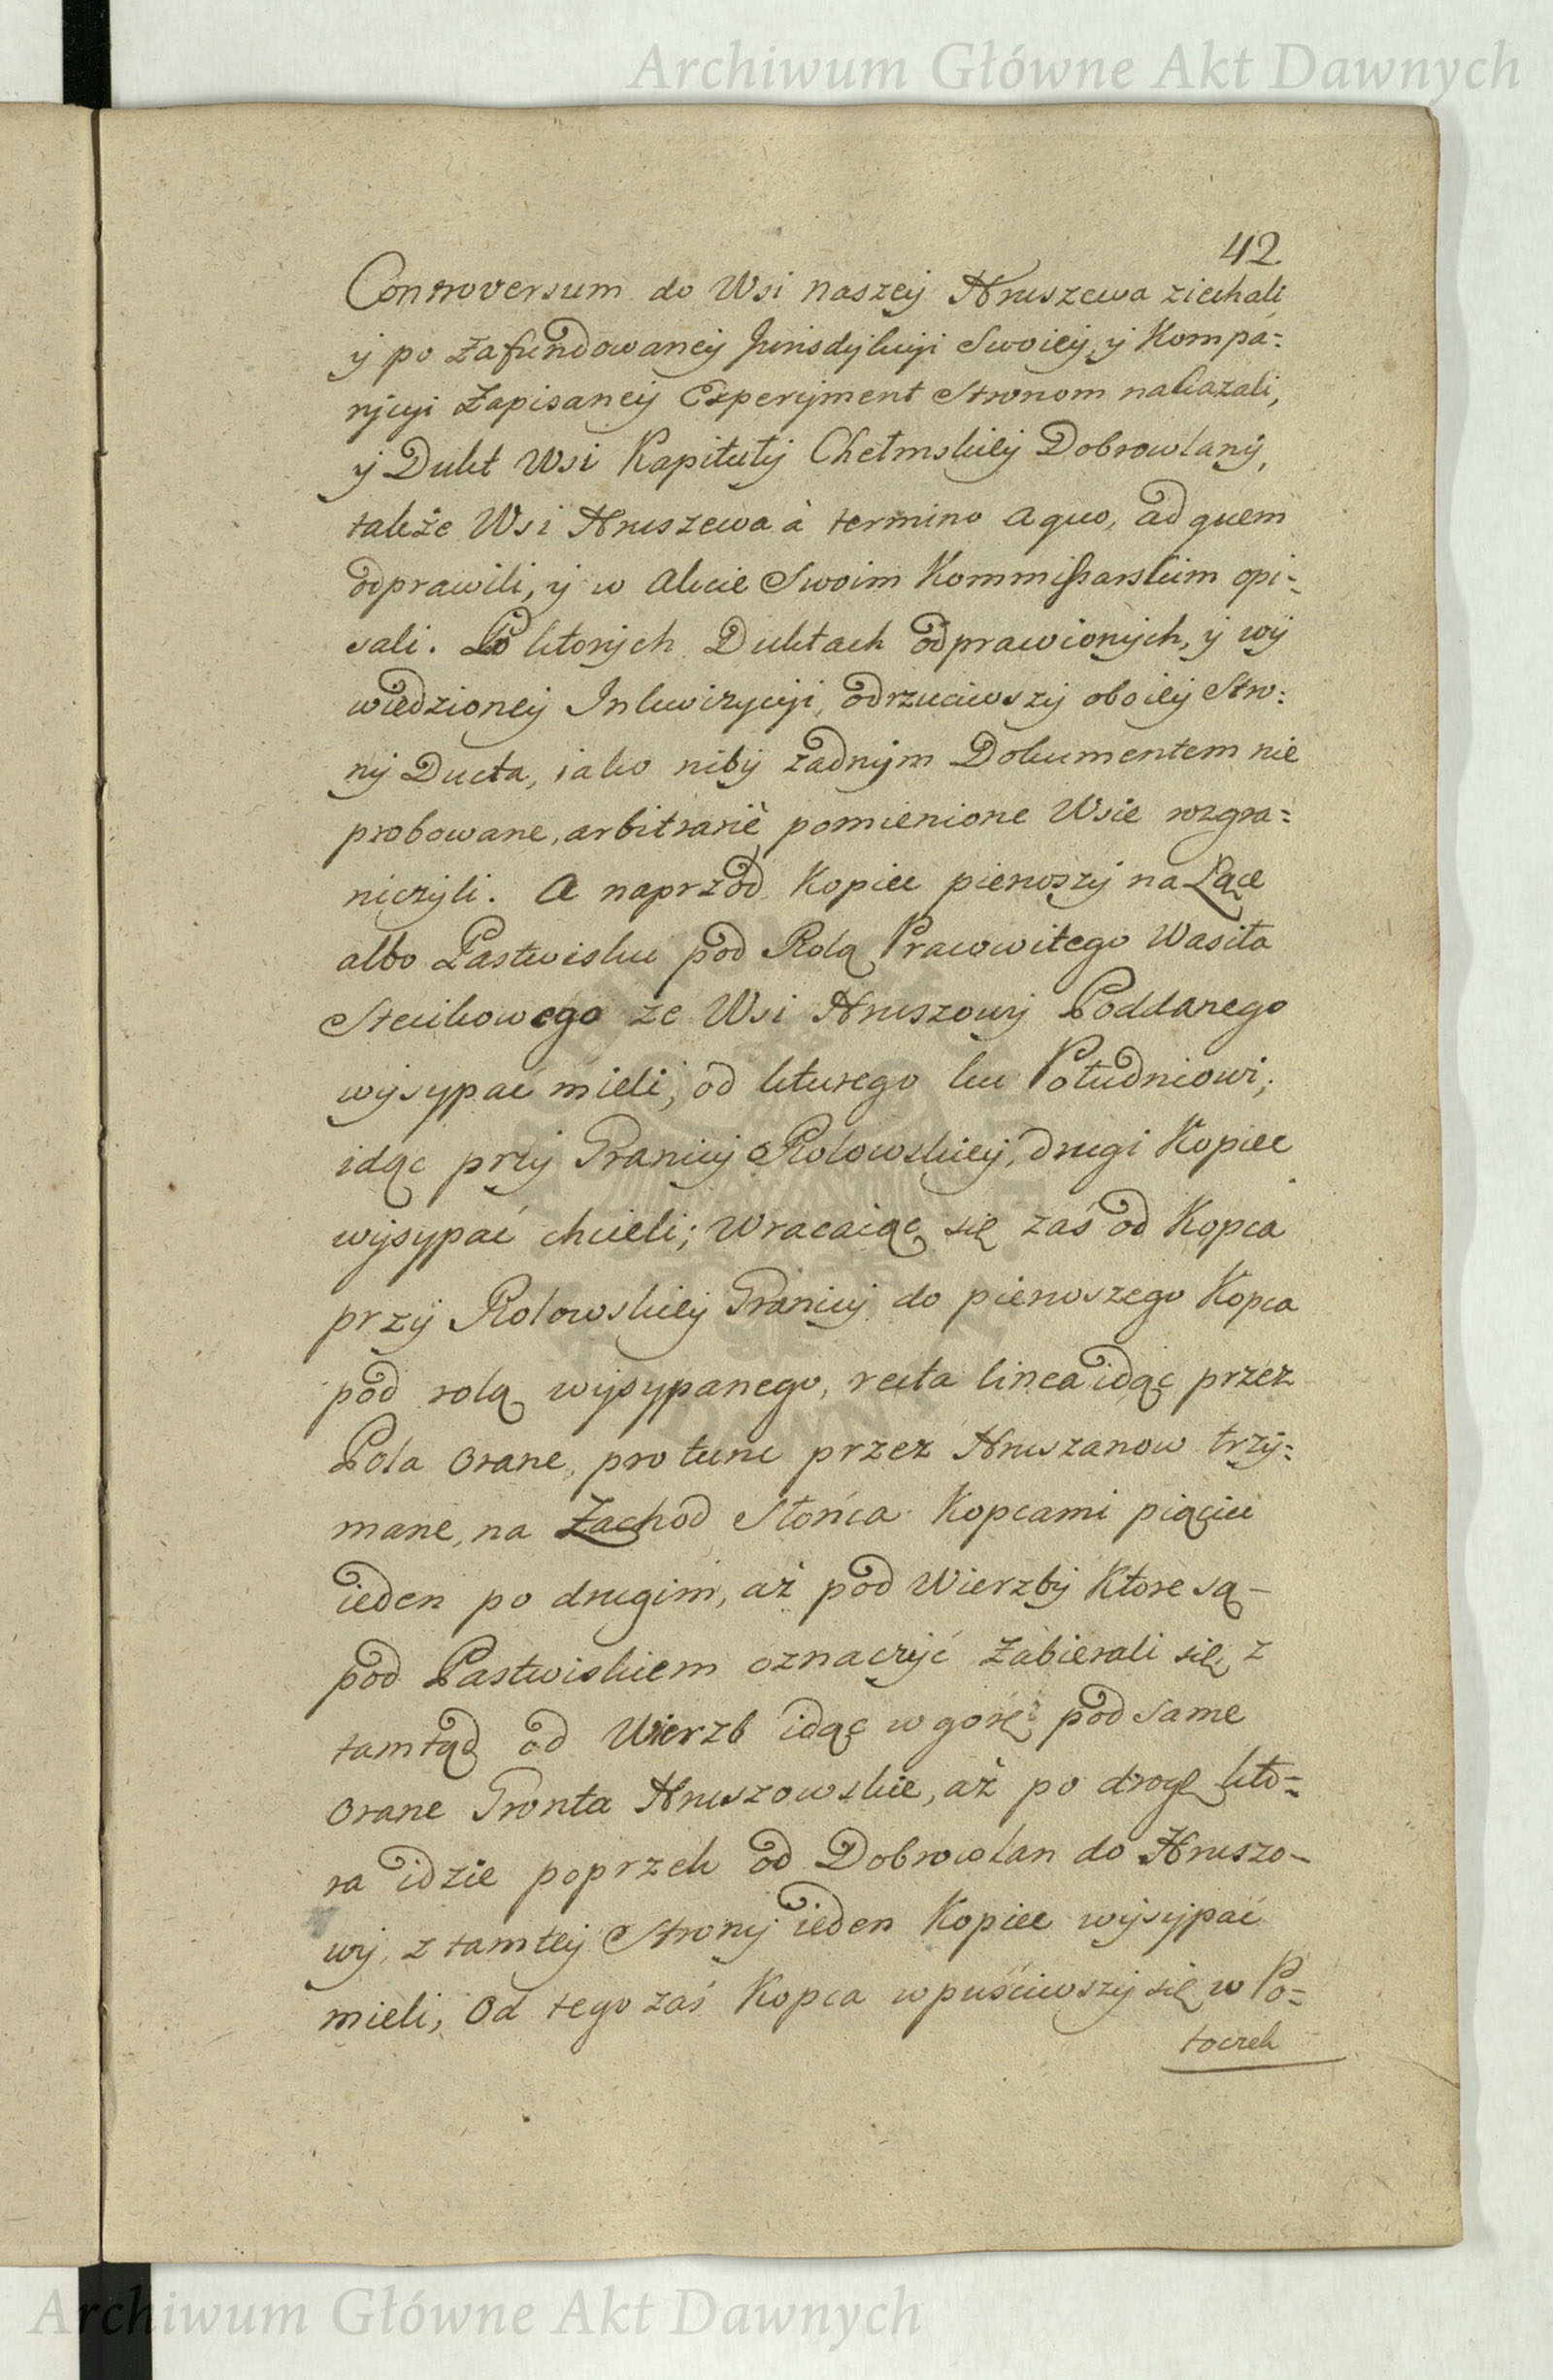 Archiwum Główne Akt Dawnych
42
Controversum do Wsi naszey Hruszewa ziechali
y po zafundowaney Jurisdykcyi Swoiey, y Kompa=
rycyi Zapisaney Experyment Stronom nakazali,
y Dukt Wsi Kapituły Chełmskiey Dobrowlany,
także Wsi Hruszewa à termino a quo, ad quem
odprawili, y w Akcie Swoim Kommissarskim opi=
sali. Po ktorych Duktach odprawionych, y wy
wiedzioney Inkwizycyi, odrzuciwszy oboiey Stro=
ny Ducta, iako niby żadnym Dokumentem nie
probowane, arbitrariè pomienione Wsie rozgra=
niczyli. A naprzod Kopiec pierwszy na Łące
albo Pastwisku pod Rolą Pracowitego Wasila
Stećkowego ze Wsi Hruszowy Poddanego
wysypać mieli, od kturego ku Południowi,
idąc przy Granicy Rolowskiey, drugi Kopiec
wysypać chcieli; Wracaiąc się zaś od Kopca
przy Rolowskiey Granicy do pierwszego Kopca
pod rolą wysypanego, recta linea idąc przez
Pola orane, pro tunc przez Hruszanow trzy=
mane, na Zachod Słońca Kopcami piąciu
ieden po drugim, aż pod Wierzby ktore są
pod Pastwiskiem oznaczyć zabierali się, z
tamtąd od Wierzb idąc w gorę pod same
orane Gronta Hruszowskie, aż po drogę kto=
ra idzie poprzek od Dobrowlan do Hruszo=
wy, z tamtey Strony ieden Kopiec wysypać
mieli, Od tego zaś Kopca wpuściwszy się w Po=
toczek
Archiwum Główne Akt Dawnych